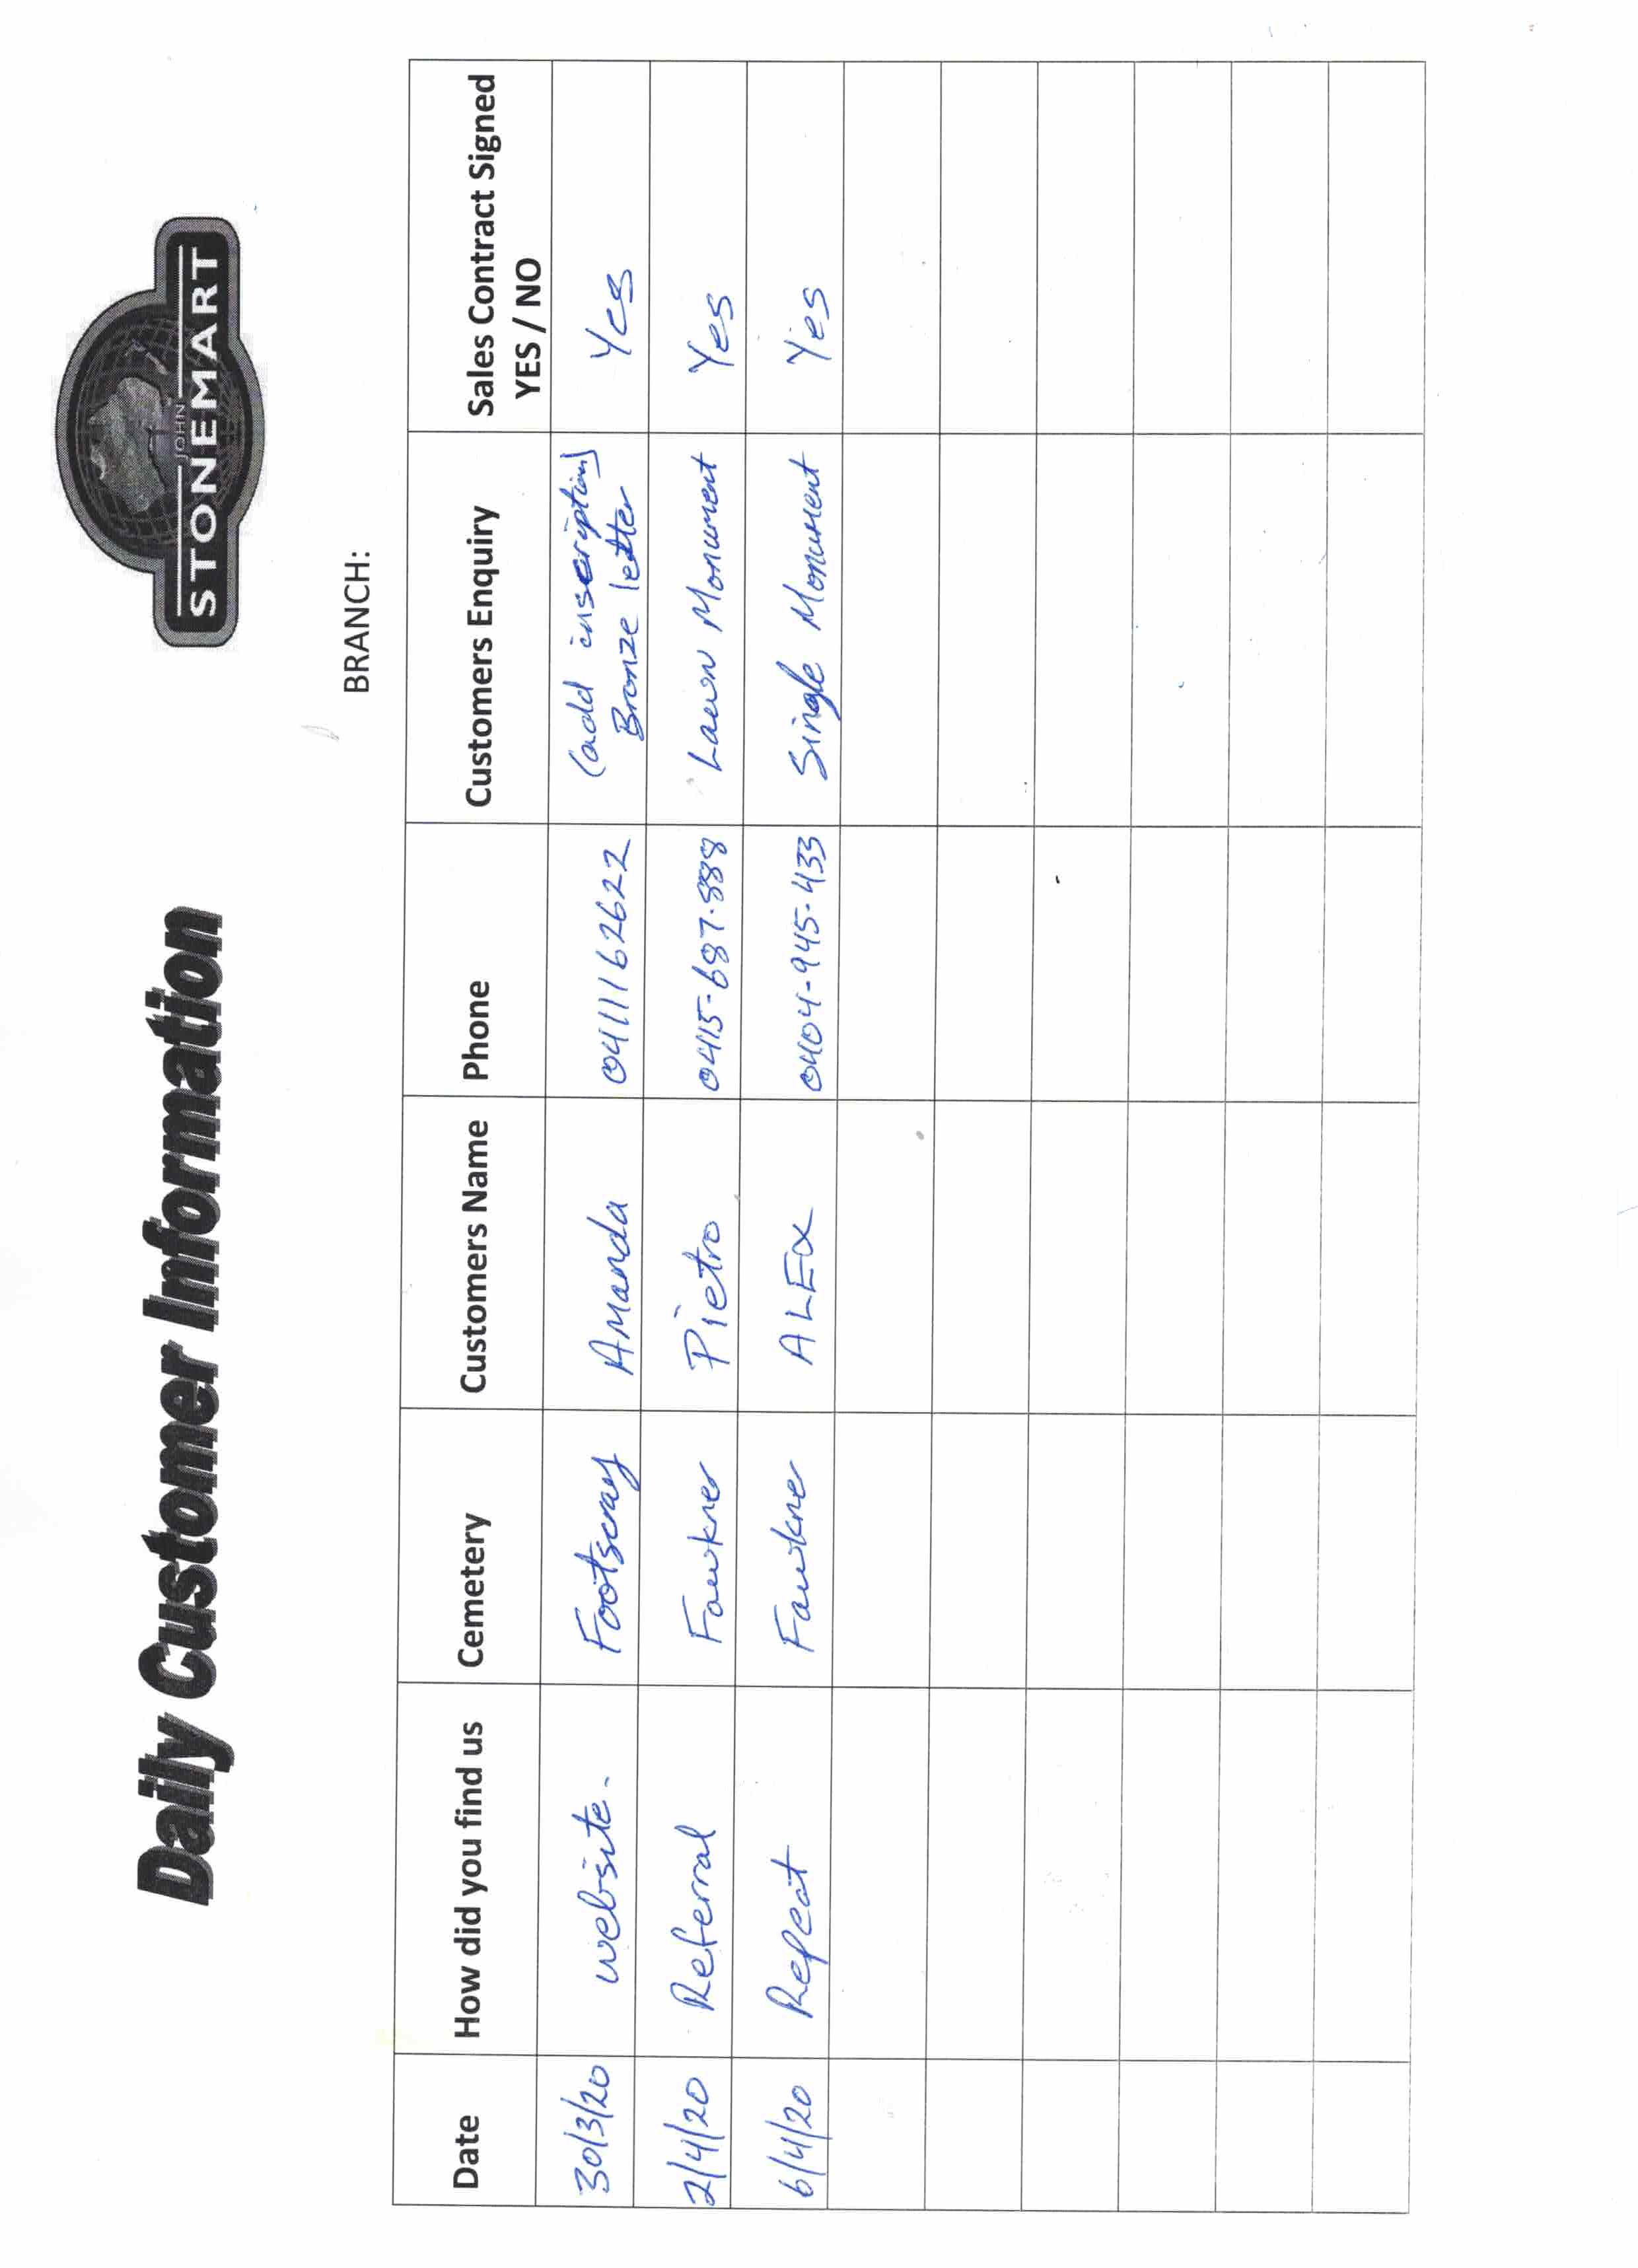 Daily Customer Information
JOHN
STONEMART
BRANCH:
Date How did you find us Cemetery Customers Name Phone Customers Enquiry Sales Contract Signed
YES / NO
30/3/20 website. Footscray Amanda 0411162622 (add inscription)
Bronze letter Yes
2/4/20 Referral Fawkner Pietro 0415-687-888 Lawn Monument Yes
6/4/20 Repeat Fawkner ALEx 0404-945-433 Single Monument Yes